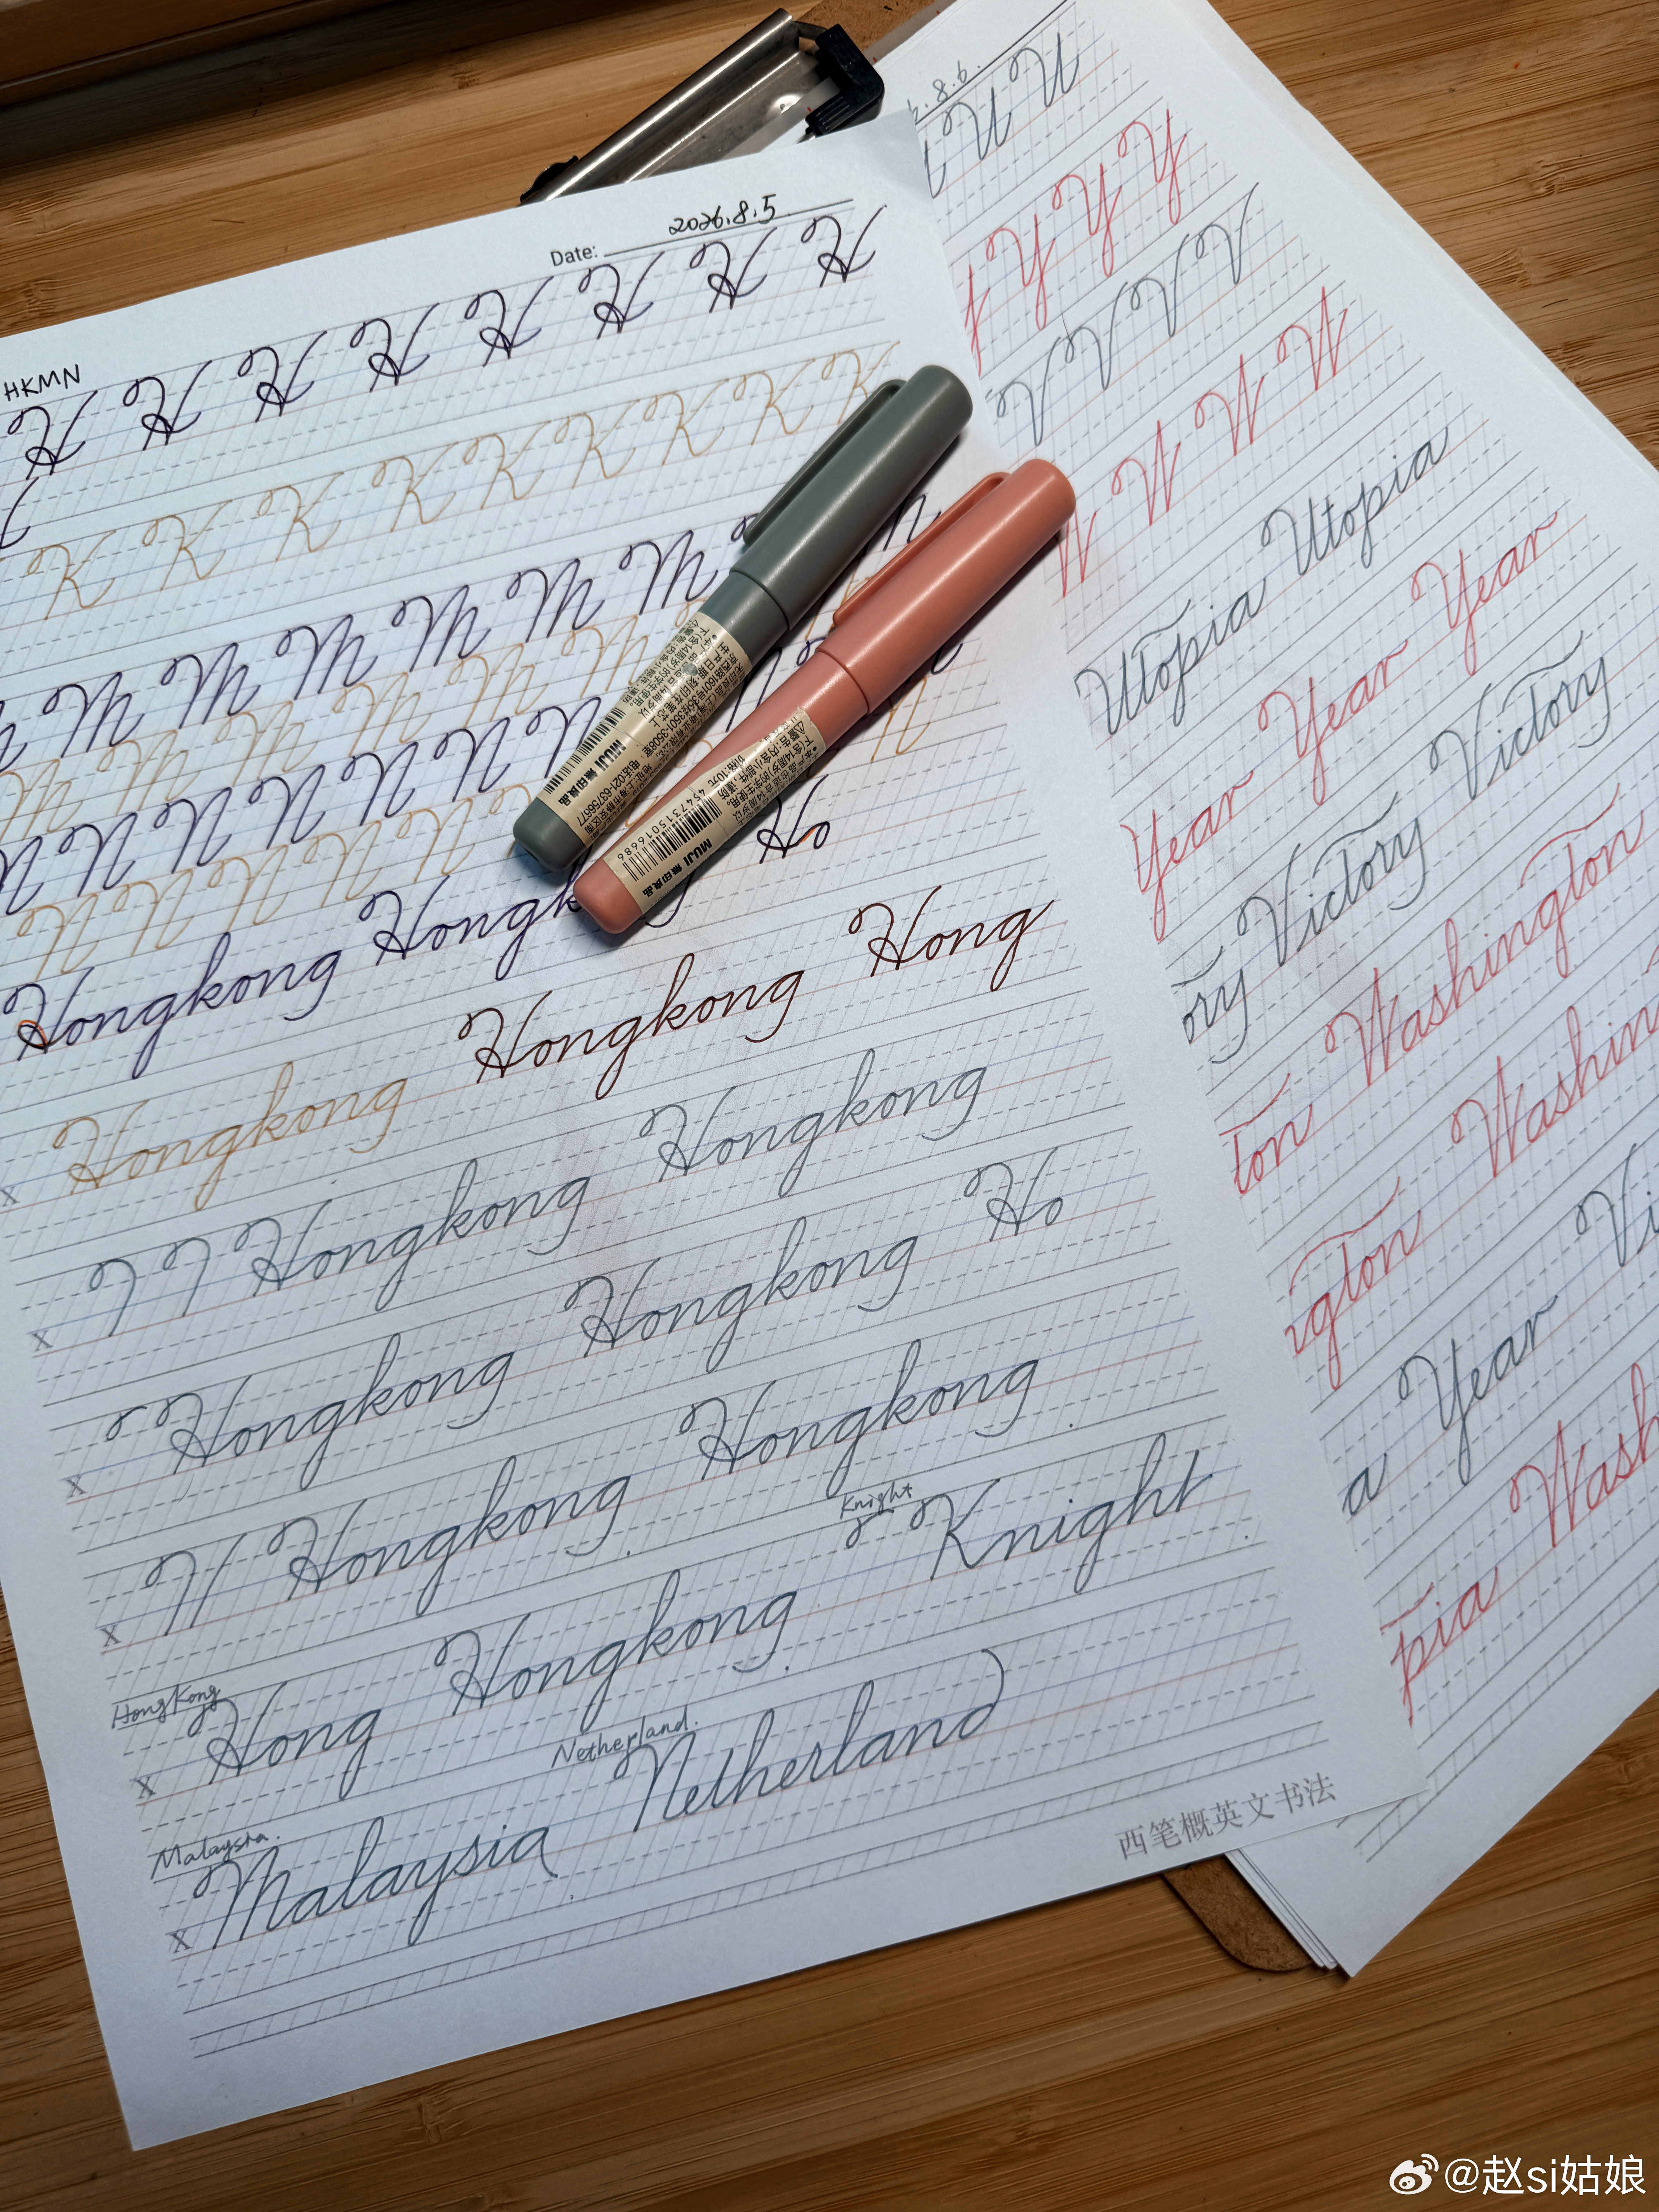 Date: 2026.8.5
HKMN
H H H H H H H H
K K K K K K K K
M M M M M M M
N N N N N N
Hongkong Hongk
Ho
Hongkong Hongkong Hong
x
Hongkong Hongkong
x
Hongkong Hongkong Ho
x
Hongkong Hongkong
x
HongKong
Hong Hongkong
Knight
Knight
x
Malaysia.
Netherland.
Malaysia Netherland
x
西笔概英文书法
8.6.
U U
Y Y Y
V V V V
W W W W
Utopia Utopia
Year Year Year
Victory
ory Victory
Washington
ton Washin
ngton
a Year Vi
pia Wash
MUJI 無印良品
MUJI 無印良品
4547315016686
@赵si姑娘